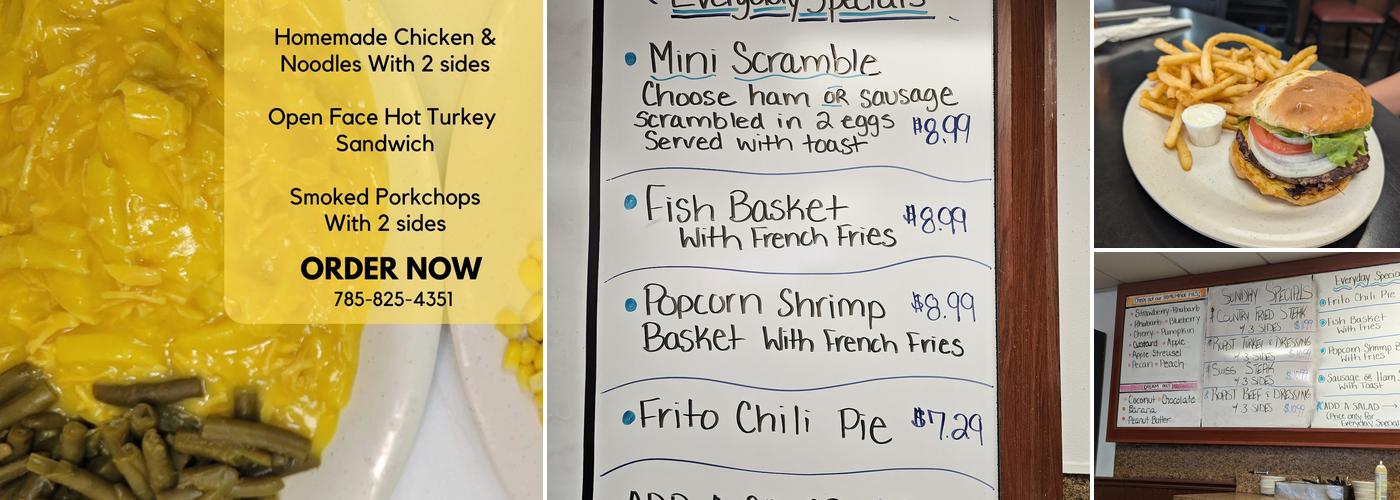 Homemade Chicken &
Noodles With 2 sides
Open Face Hot Turkey
Sandwich
Smoked Porkchops
With 2 sides
ORDER NOW
785-825-4351
Everyday Specials
Mini Scramble
Choose ham OR sausage
scrambled in 2 eggs $8.99
Served with toast
Fish Basket $8.99
With French Fries
Popcorn Shrimp $8.99
Basket With French Fries
Frito Chili Pie $7.29
ADD A
Strawberry Rhubarb
Rhubarb Blueberry
Cherry Pumpkin
Custard Apple
Apple Streusel
Pecan Peach
CREAM PIES
Coconut Chocolate
Banana
Peanut Butter
SUNDAY SPECIALS
COUNTRY FRIED STEAK
3 SIDES
ROAST TURKEY & DRESSING
3 SIDES
SWISS STEAK
3 SIDES
ROAST BEEF & DRESSING
3 SIDES $10.99
Everyday Specia
Frito Chili Pie
Fish Basket
With Fries
Popcorn Shrimp B
With Fries
Sausage or Ham S
With Toast
ADD A SALAD
(Price only for
Everyday Special